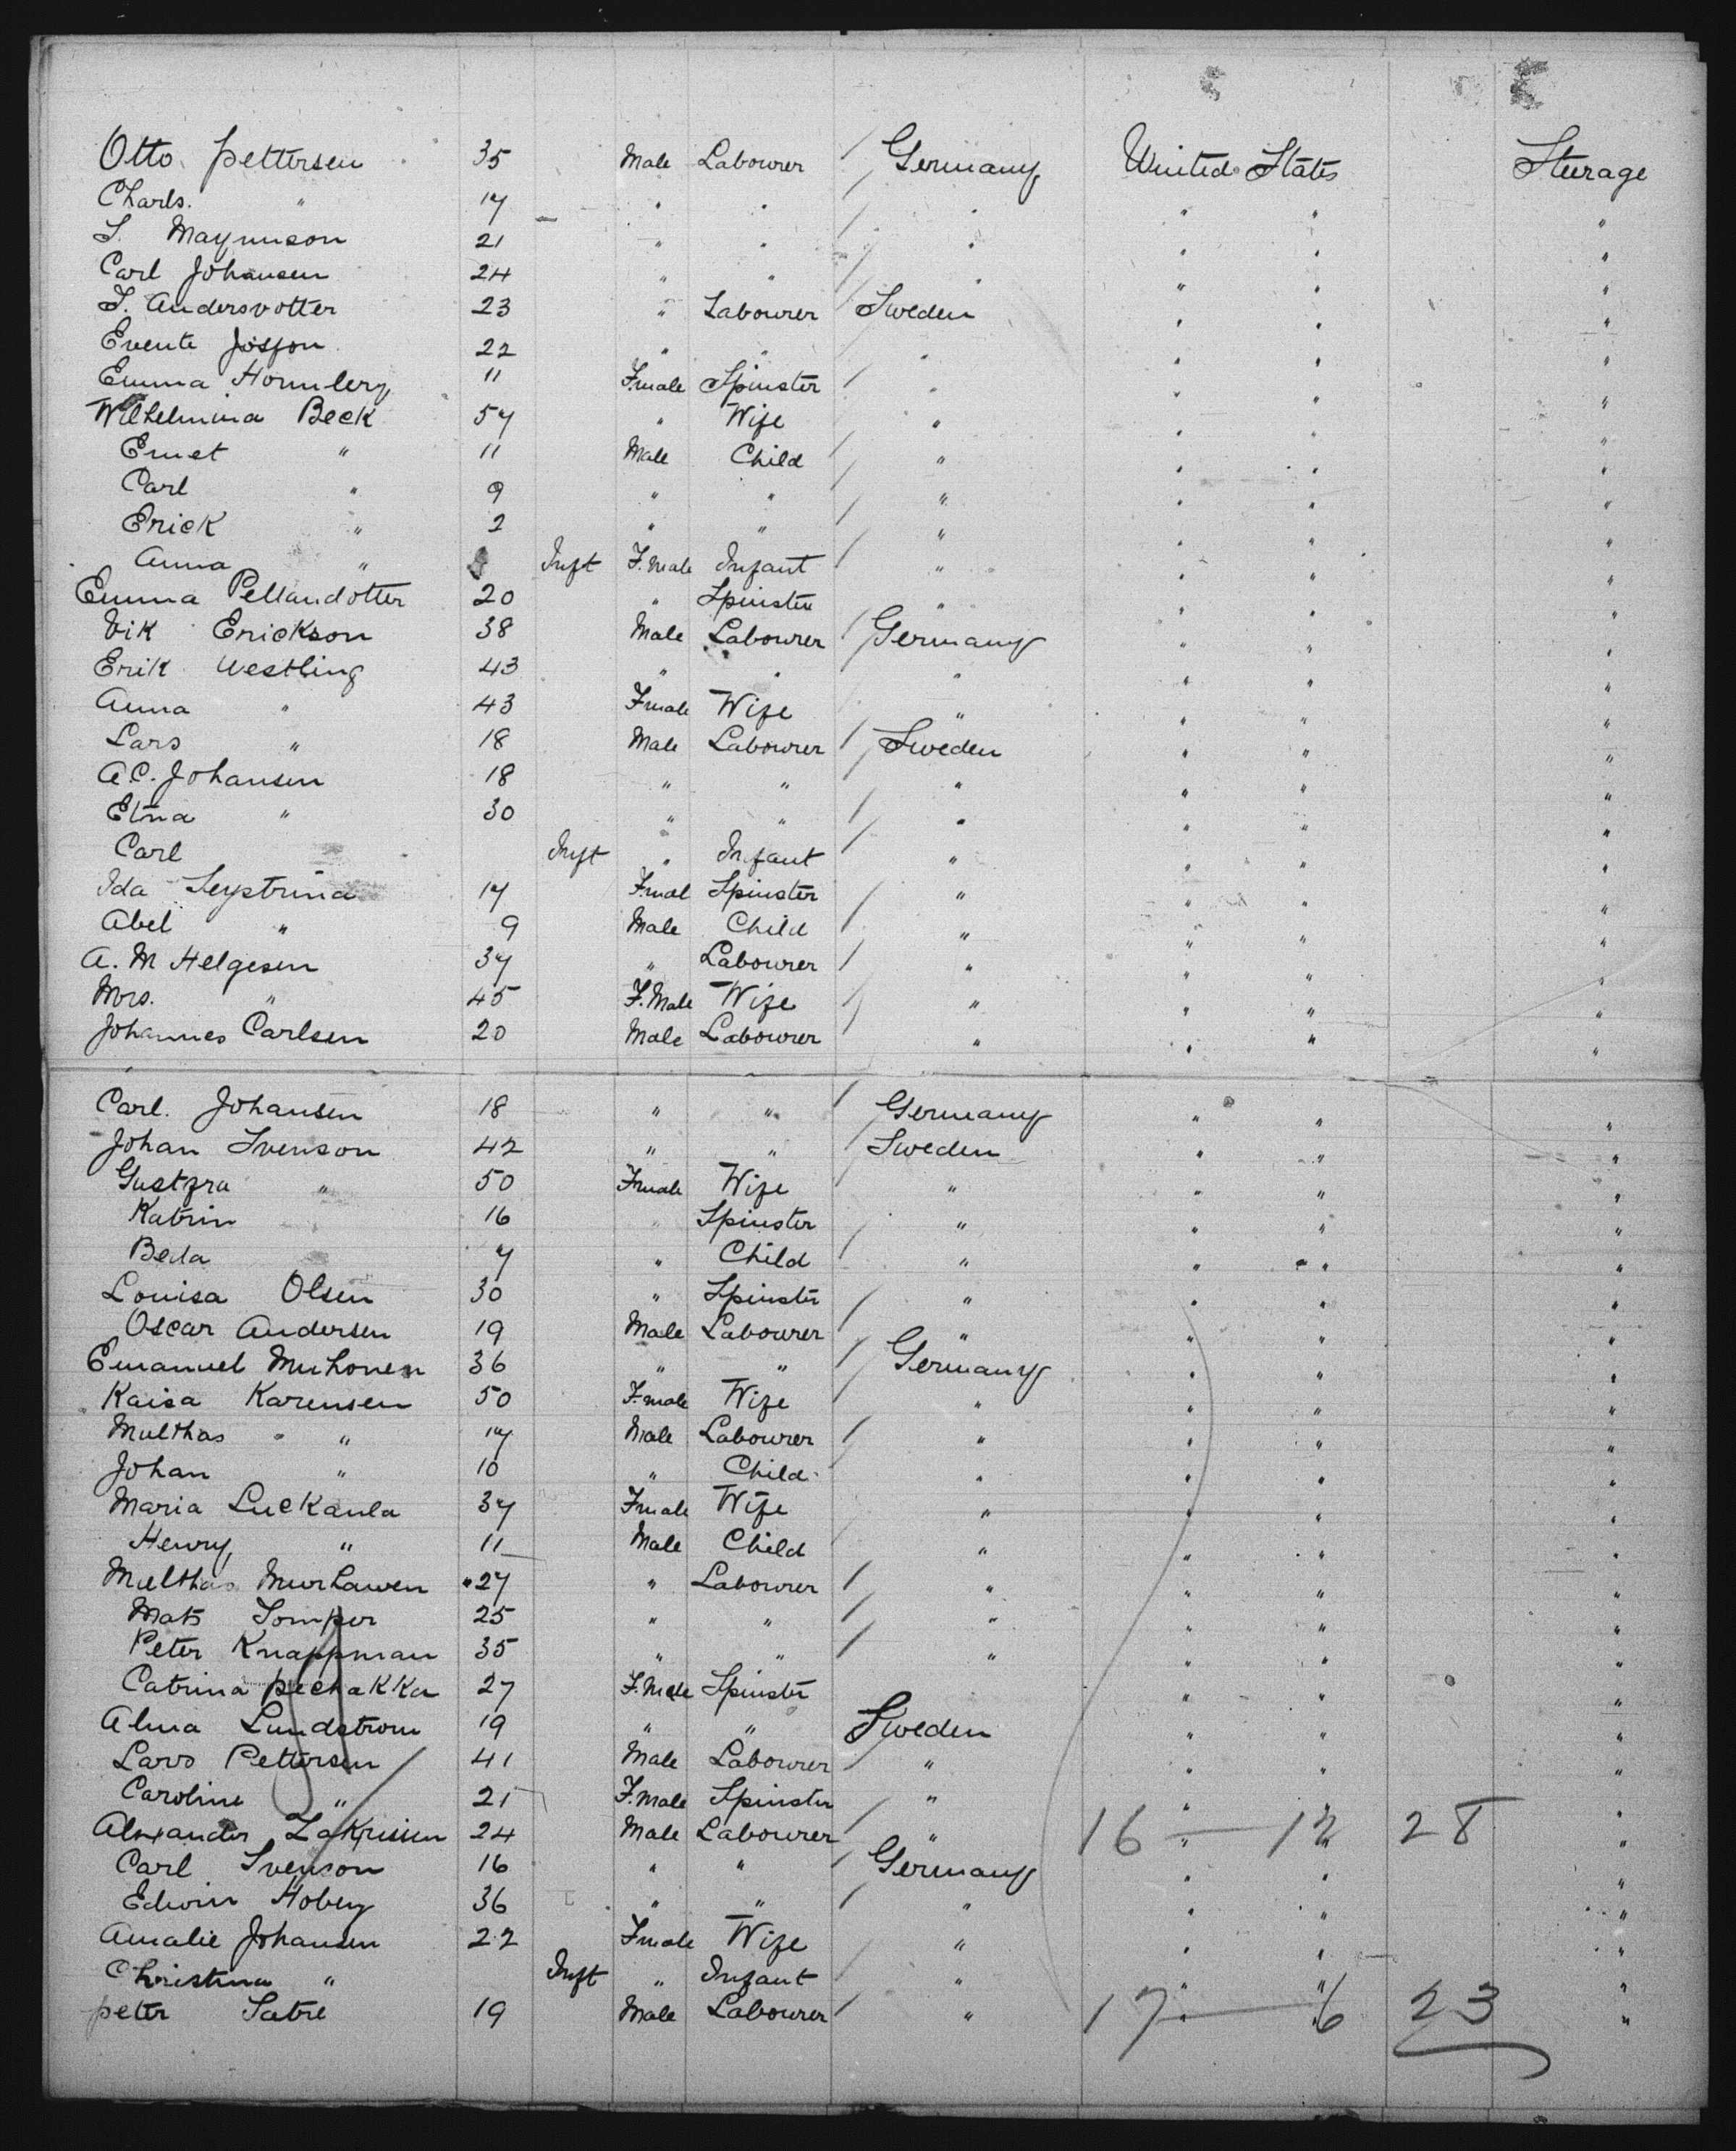 Otto Pettersen 35 Male Labourer / Germany United States Steerage
Charls. " 17 " " / " " " "
S. Magnuson 21 " " / " " " "
Carl Johansen 24 " " / " " " "
I. Andersvotter 23 " Labourer / Sweden " " "
Evente Josfon 22 " " " " " "
Emma Hornberg 11 Fmale Spinster / " " " "
Wilhelmina Beck 57 " Wife " " " "
Ernet " 11 Male Child / " " " "
Carl " 9 " " / " " " "
Erick " 2 " " / " " " "
Anna " Inft F.male Infant / " " " "
Emma Pellandotter 20 " Spinster " " " "
Erickson 38 Male Labourer / Germany " " "
Erik Westling 43 " " " " " "
Anna " 43 Fmale Wife " " " "
Lars " 18 Male Labourer / Sweden " " "
A.C. Johansen 18 " " " " " "
Elna " 30 " " / " " " "
Carl Inft " Infant / " " " "
Ida 17 Fmal Spinster / " " " "
Abel " 9 Male Child / " " " "
A. M Helgesen 37 " Labourer / " " " "
Mrs. " 45 F.Male Wife / " " " "
Johannes Carlsen 20 Male Labourer / " " " "
Carl. Johansen 18 " " / Germany " " "
Johan Svenson 42 " " / Sweden " " "
Gustafra " 50 Fmale Wife / " " " "
Katrin 16 " Spinster / " " " "
Beda 7 " Child / " " " "
Louisa Olsen 30 " Spinster / " " " "
Oscar Andersen 19 Male Labourer / " " " "
Emanuel Muhonen 36 " " / Germany " " "
Kaisa Karensen 50 F.male Wife / " " " "
Multhas " 17 Male Labourer / " " " "
Johan " 10 " Child " " " "
Maria Luckanla 37 Fmale Wife " " " "
Henry " 11 Male Child / " " " "
Multhas Murhawen 27 " Labourer / " " " "
Mats Somper 25 " " / " " " "
Peter Knappman 35 " " / " " " "
Catrina pechakka 27 F.Male Spinster " " "
Alma Lundstrom 19 " " Sweden " " "
Lars Pettersen 41 Male Labourer / " " " "
Caroline " 21 F.male Spinster " " " "
Alexander Zakrissen 24 Male Labourer / " 16 — 12 28 "
Carl Svenson 16 " " / Germany " " "
Edwin Hoberg 36 " " / " " " "
Amalie Johansen 22 Fmale Wife " " " "
Christina " Inft " Infant / " " " "
peter Satre 19 Male Labourer / " 17 — 6 23 "